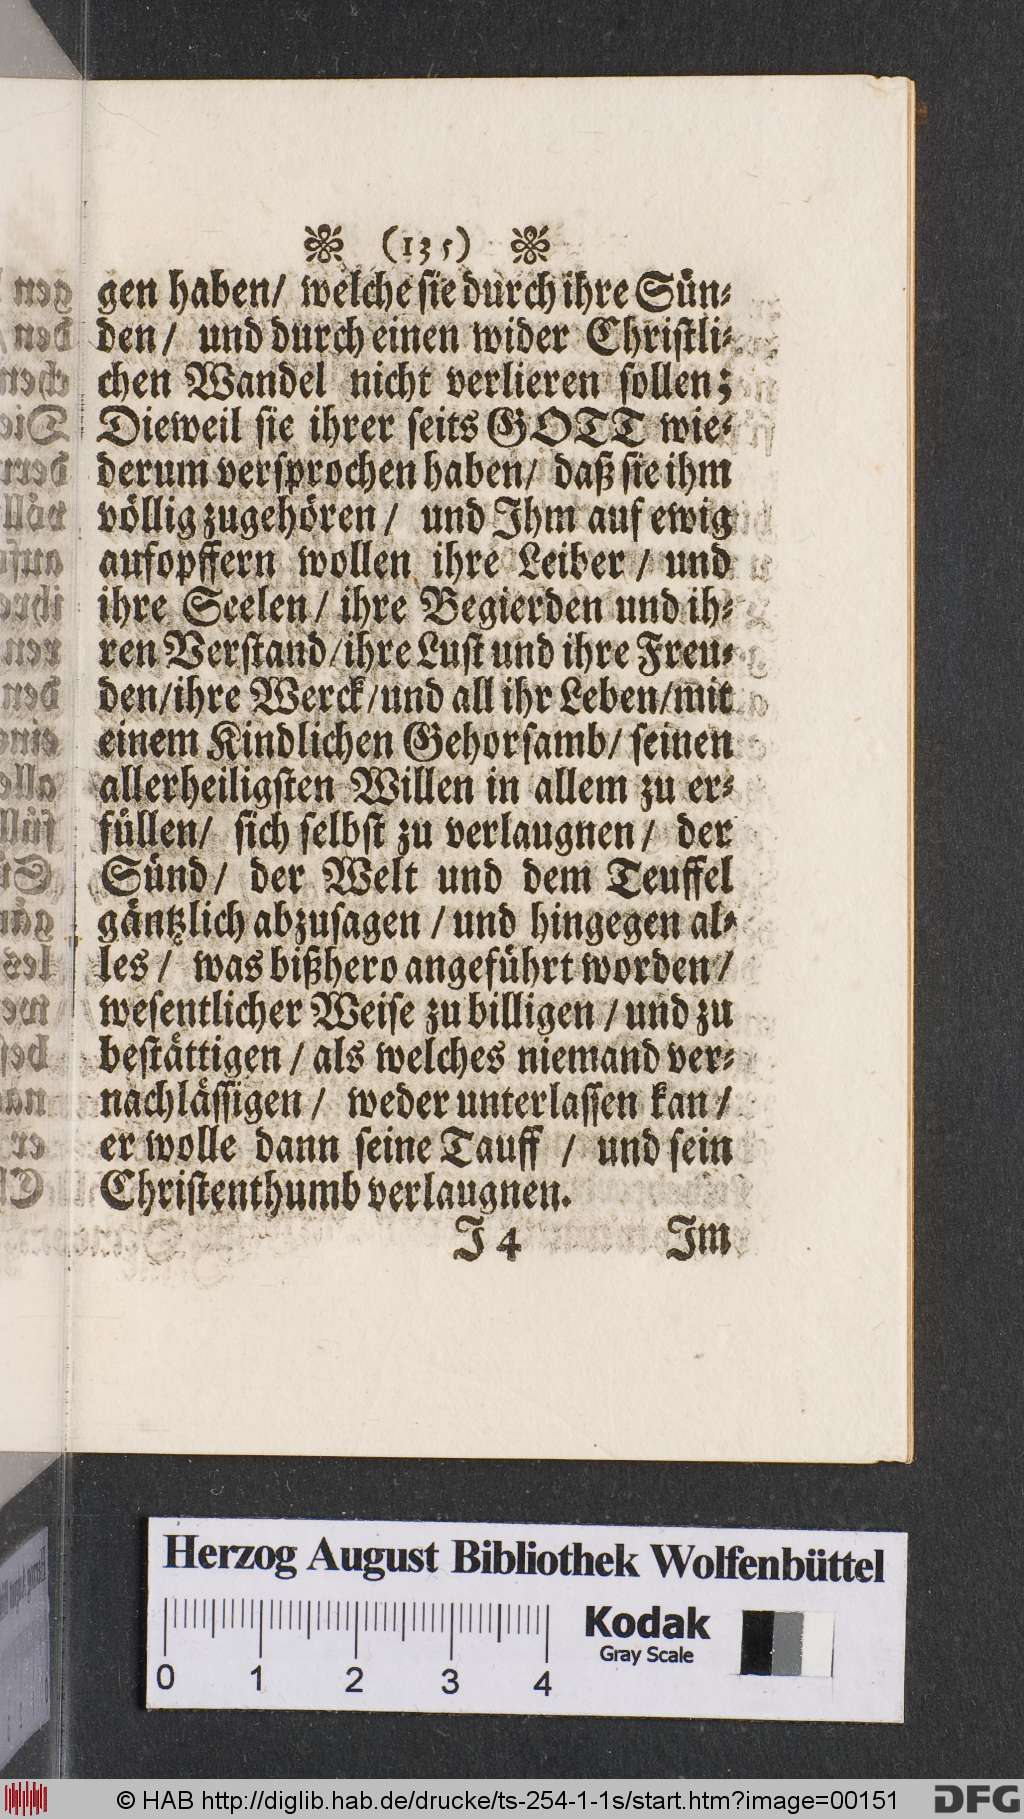 (135)
gen haben/ welche sie durch ihre Sün⸗
den/ und durch einen wider Christli⸗
chen Wandel nicht verlieren sollen;
Dieweil sie ihrer seits GOTT wie⸗
derum versprochen haben/ daß sie ihm
völlig zugehören/ und Ihm auf ewig
aufopffern wollen ihre Leiber/ und
ihre Seelen/ ihre Begierden und ih⸗
ren Verstand/ihre Lust und ihre Freu⸗
den/ihre Werck/und all ihr Leben/mit
einem Kindlichen Gehorsamb/ seinen
allerheiligsten Willen in allem zu er⸗
füllen/ sich selbst zu verlaugnen/ der
Sünd/ der Welt und dem Teuffel
gäntzlich abzusagen/und hingegen al⸗
les/ was bißhero angeführt worden/
wesentlicher Weise zu billigen/und zu
bestättigen/als welches niemand ver⸗
nachlässigen/ weder unterlassen kan/
er wolle dann seine Tauff/ und sein
Christenthumb verlaugnen.
J 4 Im
Herzog August Bibliothek Wolfenbüttel
Kodak
Gray Scale
0 1 2 3 4
© HAB http://diglib.hab.de/drucke/ts-254-1-1s/start.htm?image=00151
DFG